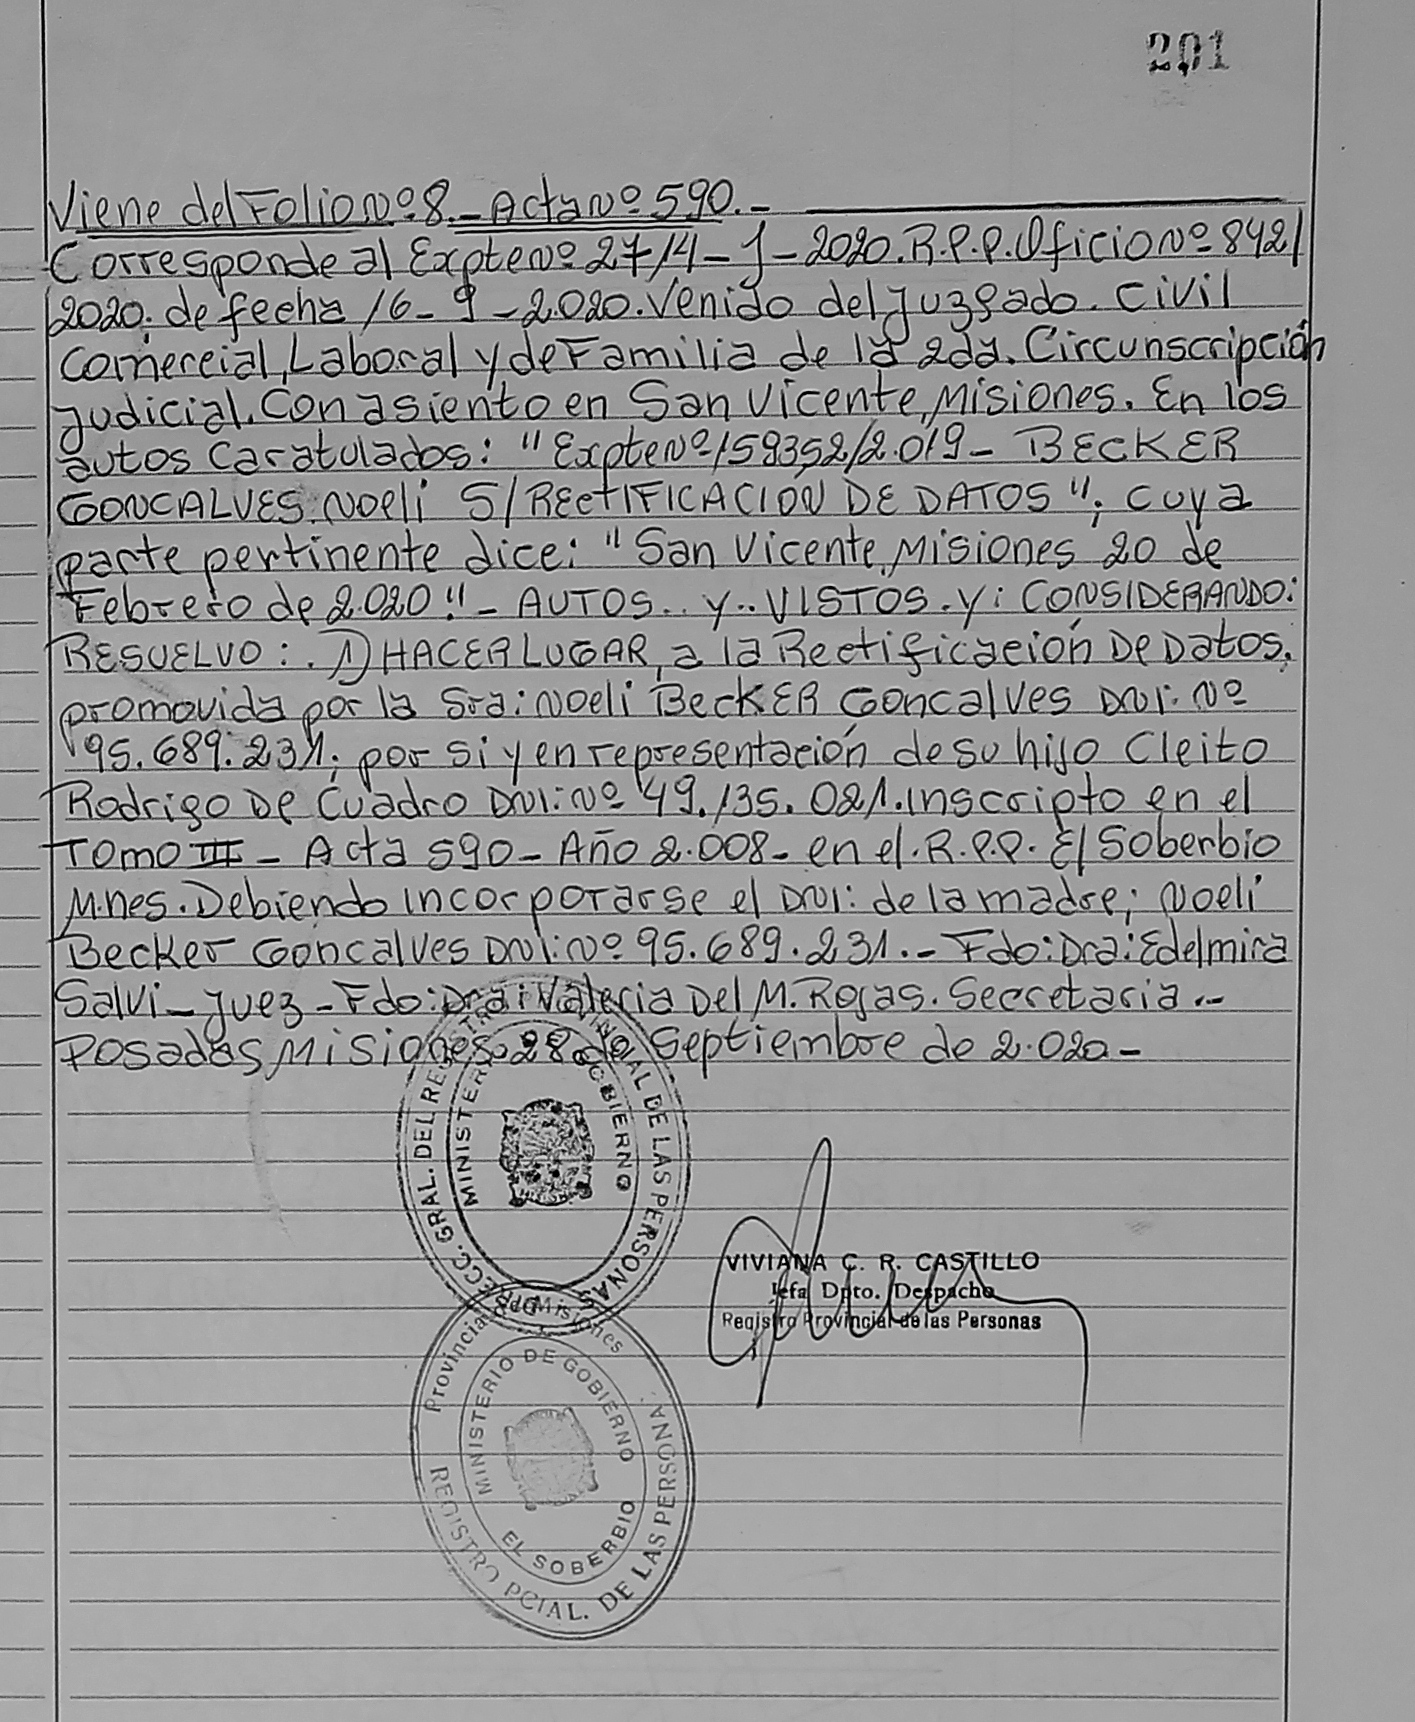 201
Viene del Folio Nº 8.- Acta Nº 590.-
Corresponde al Expte Nº 2714-J-2020. R.P.P. Oficio Nº 842/
2020. de fecha 16-9-2.020. Venido del Juzgado. Civil
Comercial, Laboral y de Familia de la 2da. Circunscripción
Judicial. Con asiento en San Vicente, Misiones. En los
autos Caratulados: "Expte Nº 159352/2.019- BECKER
GONCALVES. Noeli S/RECTIFICACIÓN DE DATOS"; cuya
parte pertinente dice: "San Vicente, Misiones 20 de
Febrero de 2.020"- AUTOS.. y.. VISTOS. y: CONSIDERANDO:
RESUELVO: . 1) HACER LUGAR, a la Rectificación De Datos.
promovida por la Sra: Noeli BECKER Goncalves DNI: Nº
95.689.231; por si y en representación de su hijo Cleito
Rodrigo De Cuadro DNI: Nº 49.135.021. inscripto en el
Tomo III - Acta 590 - Año 2.008- en el. R.P.P. El Soberbio
M.nes. Debiendo incorporarse el DNI: de la madre; Noeli
Becker Goncalves DNI: Nº 95.689.231.- Fdo: Dra: Edelmira
Salvi - Juez - Fdo: Dra: Valeria Del M. Rojas. Secretaria.-
Posadas, Misiones 28 de Septiembre de 2.020-
DIRECC. GRAL. DEL REGISTRO PROVINCIAL DE LAS PERSONAS
MINISTERIO DE GOBIERNO
VIVIANA C. R. CASTILLO
Jefa Dpto. Despacho
Registro Provincial de las Personas
Provincia de Misiones
MINISTERIO DE GOBIERNO
EL SOBERBIO
REGISTRO PCIAL. DE LAS PERSONA